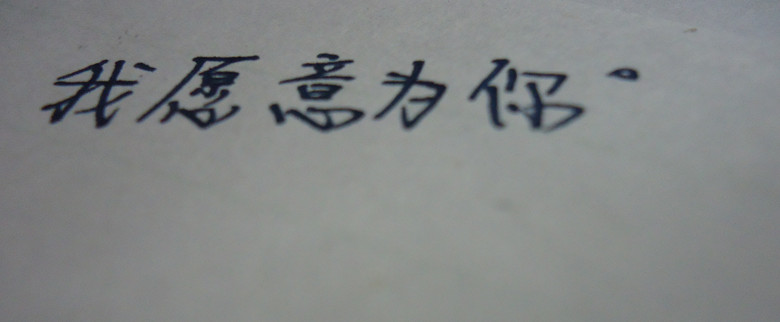 我愿意为你。